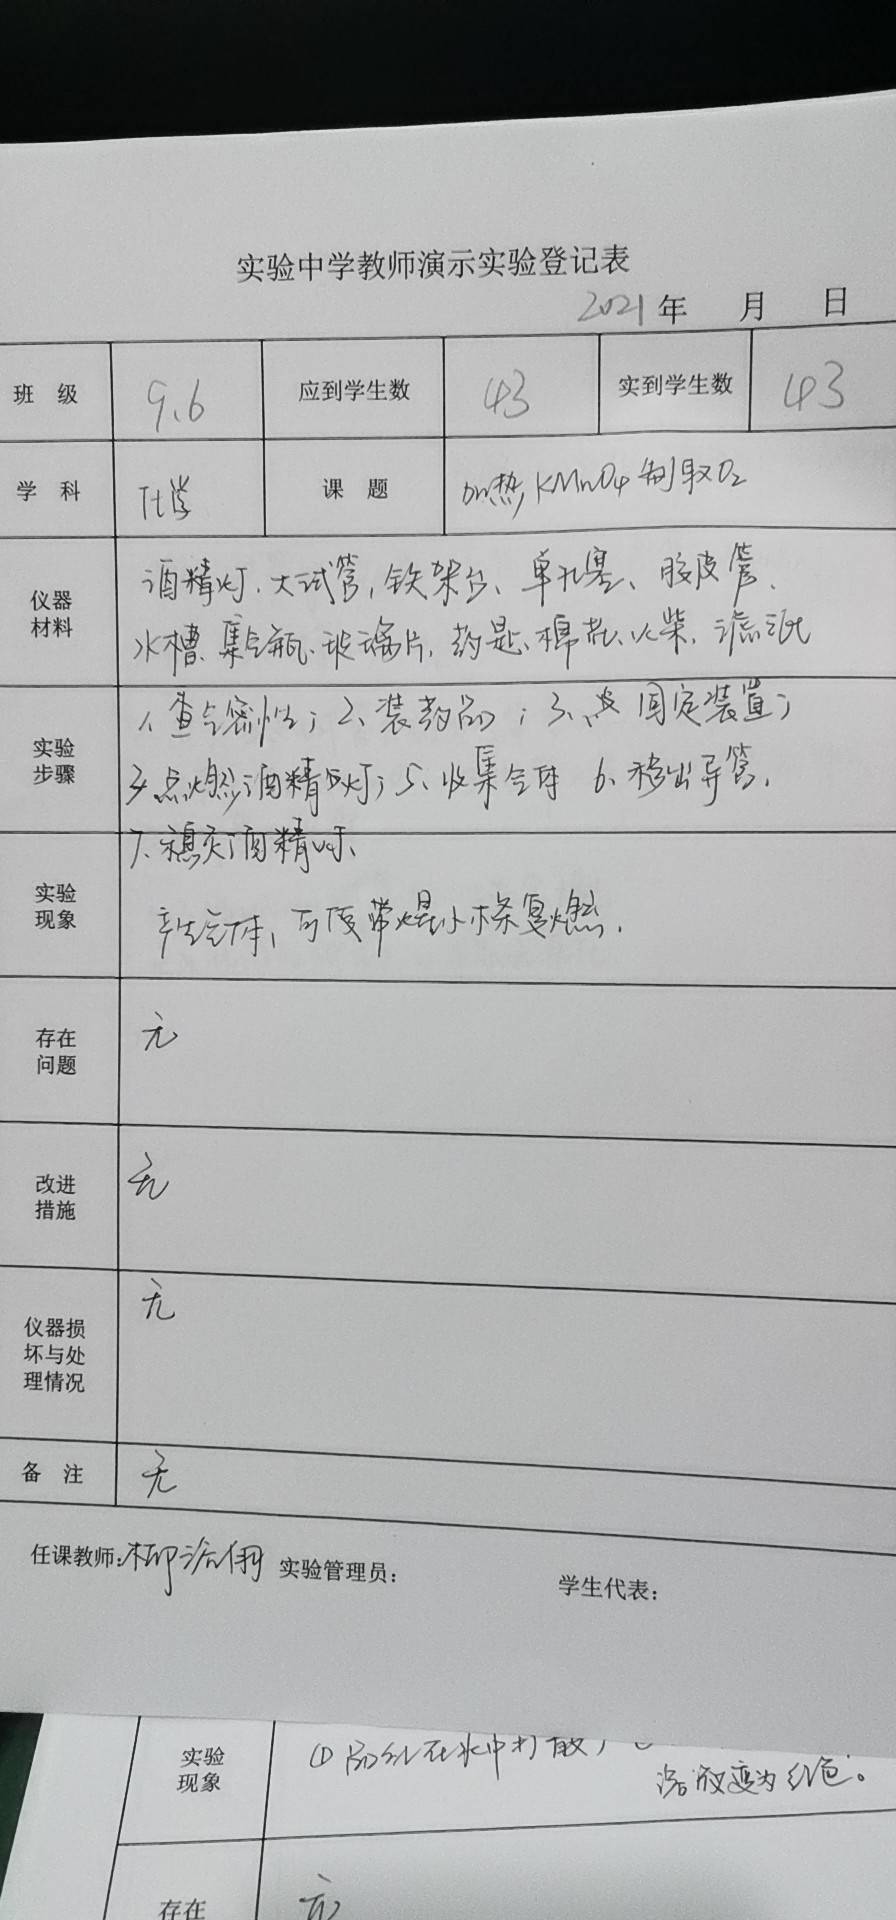 实验中学教师演示实验登记表
2021年 月 日
班 级 9.6 应到学生数 43 实到学生数 43
学 科 化学 课 题 加热KMnO4制取O2
仪器材料 酒精灯、大试管、铁架台、单孔塞、胶皮管、
水槽、集气瓶、玻璃片、药匙、棉花、火柴、滤纸
实验步骤 1、查气密性；2、装药品；3、固定装置；
4、点燃酒精灯；5、收集气体 6、移出导管、
7、熄灭酒精灯、
实验现象 产生气体，可使带火星小木条复燃.
存在问题 无
改进措施 无
仪器损坏与处理情况 无
备 注 无
任课教师: 实验管理员: 学生代表:
实验现象 ① 在水中扩散
溶液变为红色。
存在 无